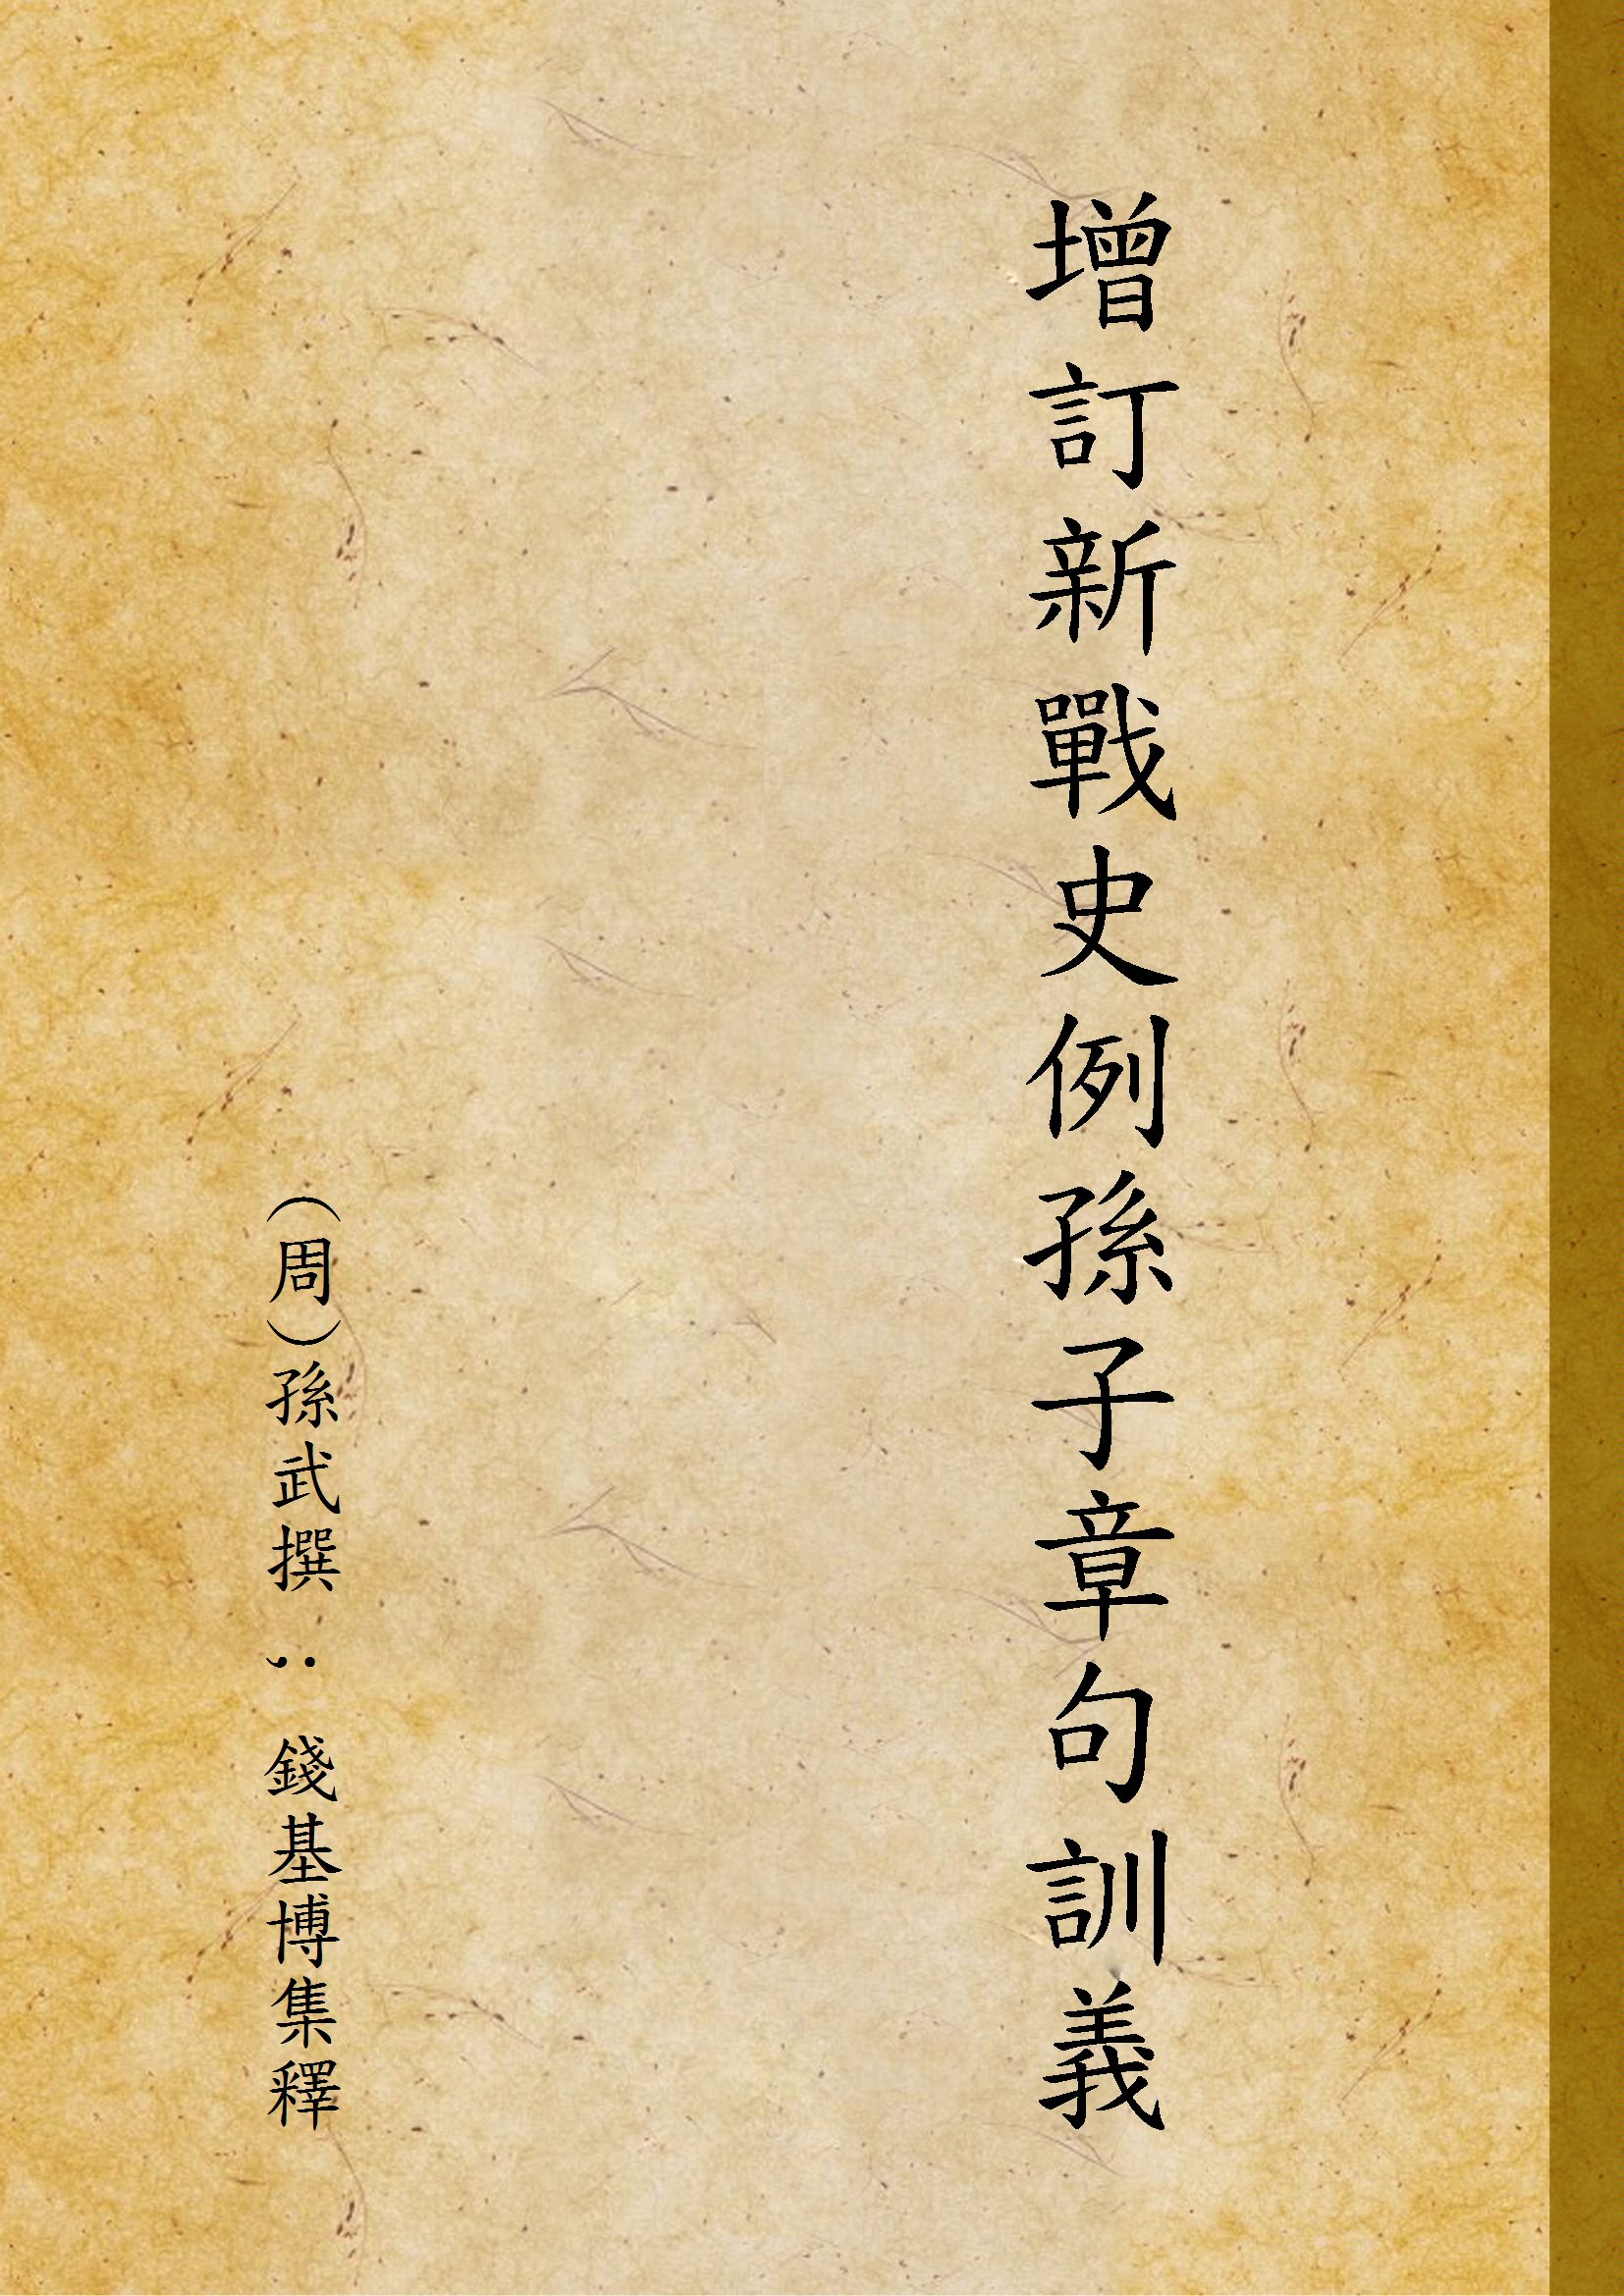 增訂新戰史例孫子章句訓義
(周)孫武撰 ; 錢基博集釋